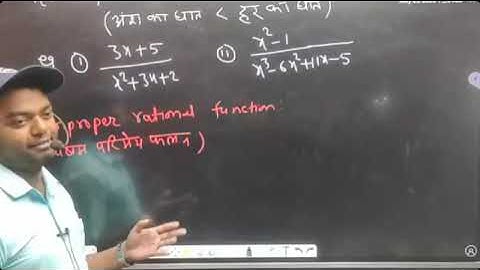 (अंश का घात < हर का घात)
eg ① (3x+5)/(x²+3x+2) ⑪ (x²-1)/(x³-6x²+11x-5)
proper rational function:
परिमेय फलन)